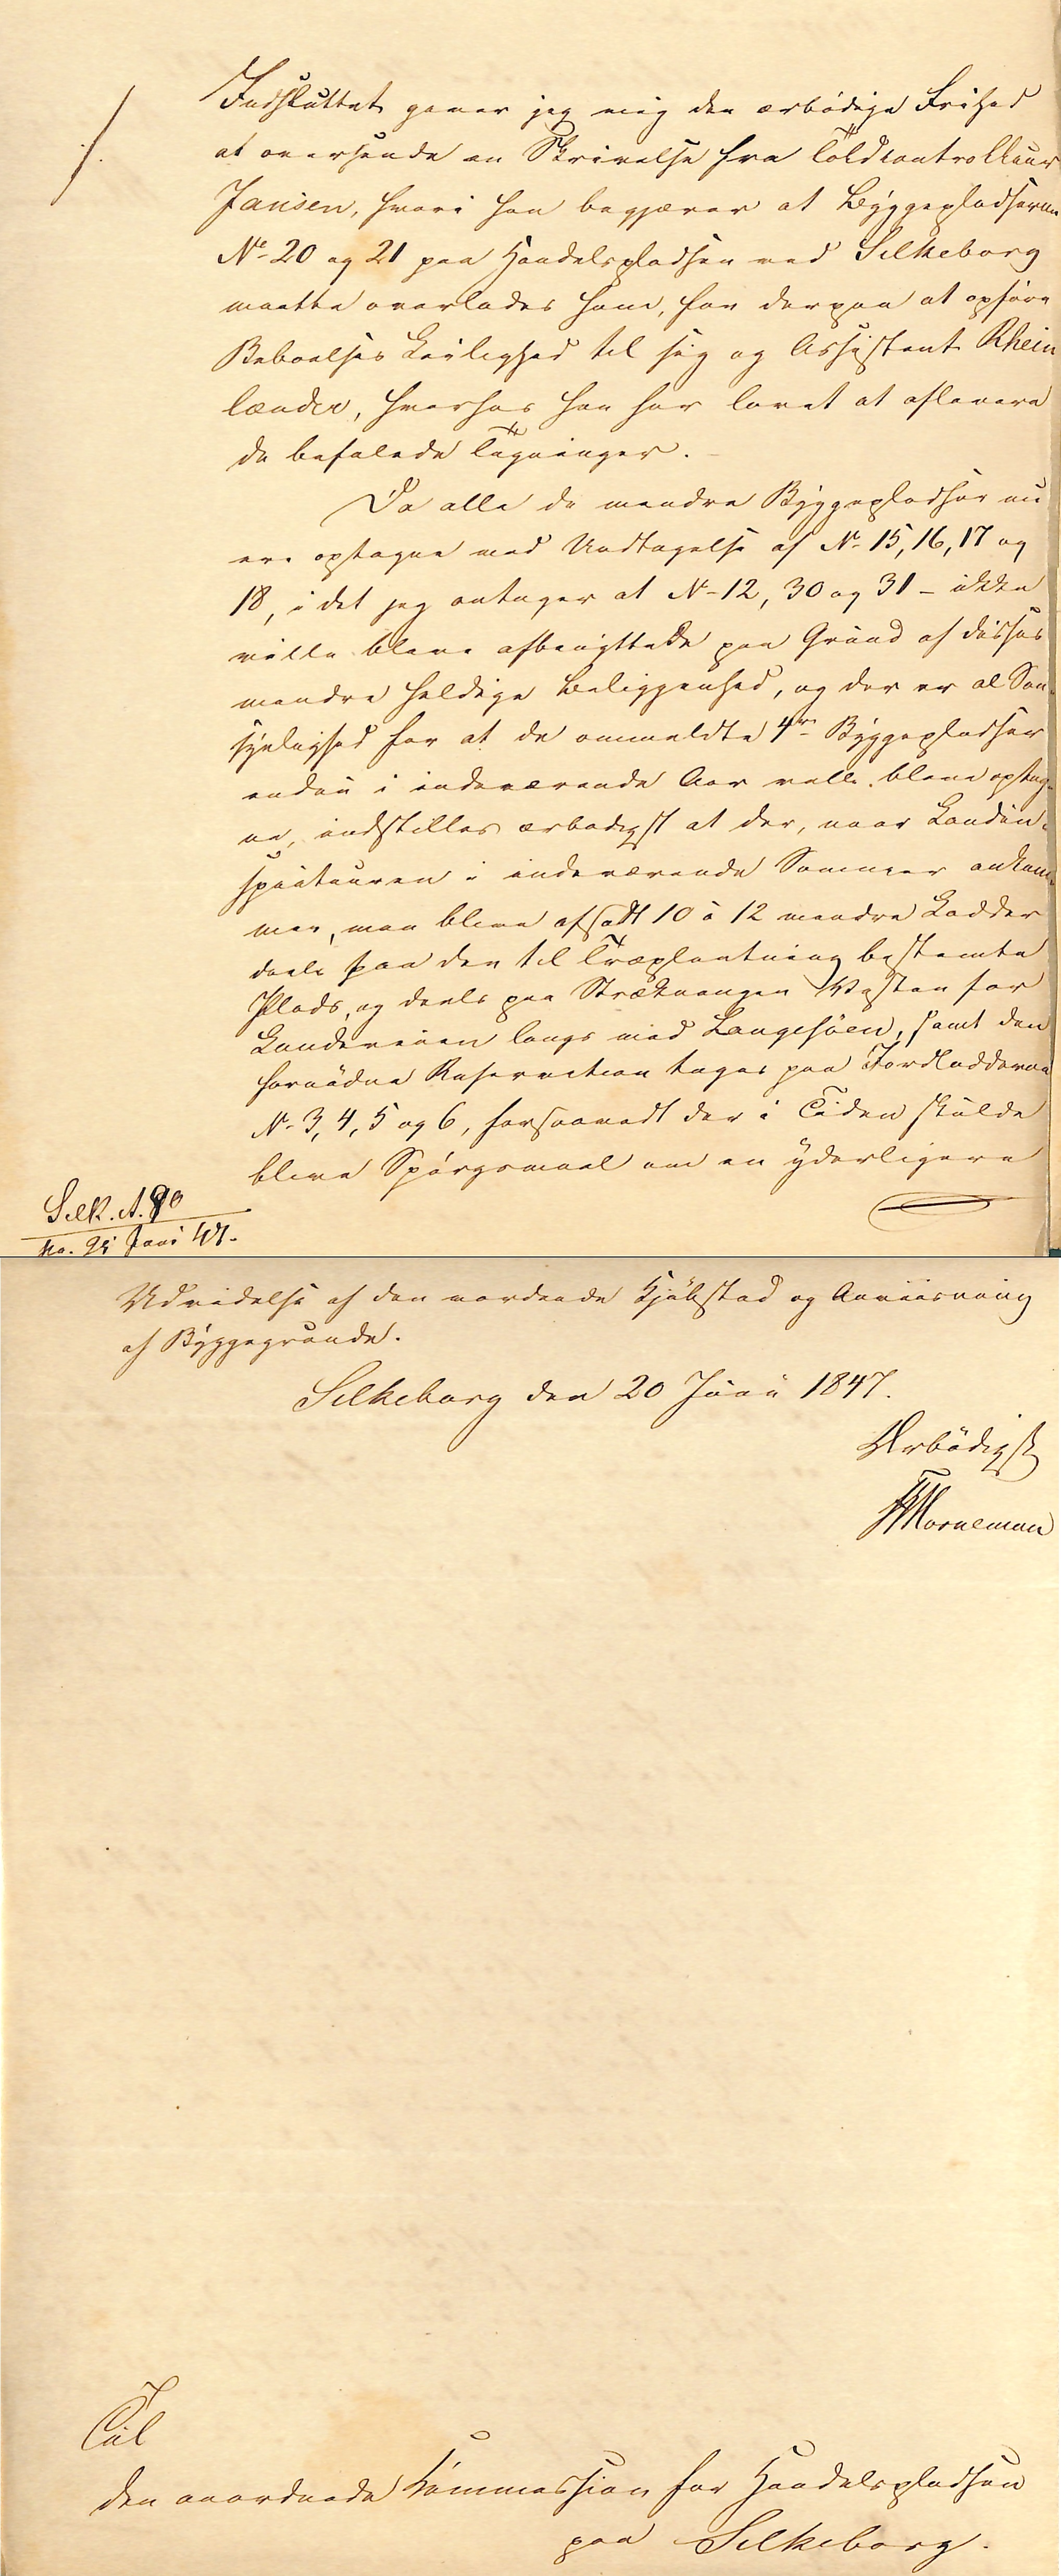 Indsluttet giver jeg mig den ærbödige Frihed
at oversende en Skrivelse fra Toldcontrolleur
Jansen, hvori han begjærer at Byggepladserne
No 20 og 21 paa Handelspladsen ved Silkeborg
maatte overlades ham, for derpaa at opföre
Beboelses Leilighed til sig og Assistent Rhein
lænder, hvorhos han har lovet at aflevere
de befalede Tegninger.
Da alle de mendre Byggepladser nu
ere optagne med Undtagelse af No 15, 16, 17 og
18, i det jeg antager at No 12, 30 og 31 - ikke
ville blive afbenyttede paa Grund af disses
mendre heldige Beliggenhed, og der er al San-
synlighed for at de ommeldte 4re Byggepladser
endnu i indeværende Aar ville blive optag-
ne, indstilles ærbødigst at der, naar Landin-
specteuren i indeværende Sommer ankom-
mer, maa blive afsadt 10 à 12 mendre Lodder
deels paa den til Træplantning bestemte
Plads, og deels paa Strækningen Vesten for
Landeveien langs med Langesöen, samt den
fornödne Reservation tages paa Jordlodderne
No 3, 4, 5 og 6, forsaavidt der i Tiden skulde
blive Spörgsmaal om en yderligere
Silk. A. 90
Udvidelse af den vordende Kjöbstad og Anviisning
af Byggegrunde.
Silkeborg den 20 Juni 1847.
Ærbödigst
Til
den anordnede Kommission for Handelspladsen
paa Silkeborg.